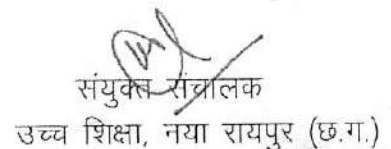 संयुक्त संचालक
उच्च शिक्षा, नया रायपुर (छ.ग.)